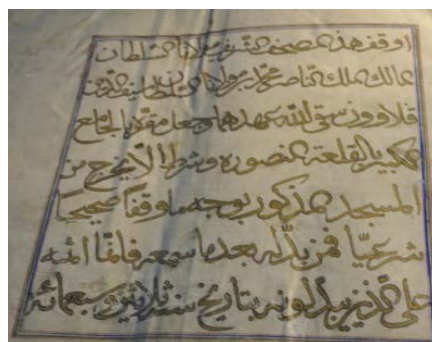 اوقف هذا المصحف الشريف مولانا السلطان
مالك الملك الناصر محمد بن مولانا السلطان سيف الدين
قلاوون سقى الله عهدهما وجعل مقره بالجامع
الكبير بالقلعة المنصورة وشرط الا يخرج من
المسجد المذكور بوجه ما وقفا صحيحا
شرعيا فمن بدله بعدما سمعه فانما اثمه
على الذين يبدلونه بتاريخ سنة ثلاثين وسبعمائة